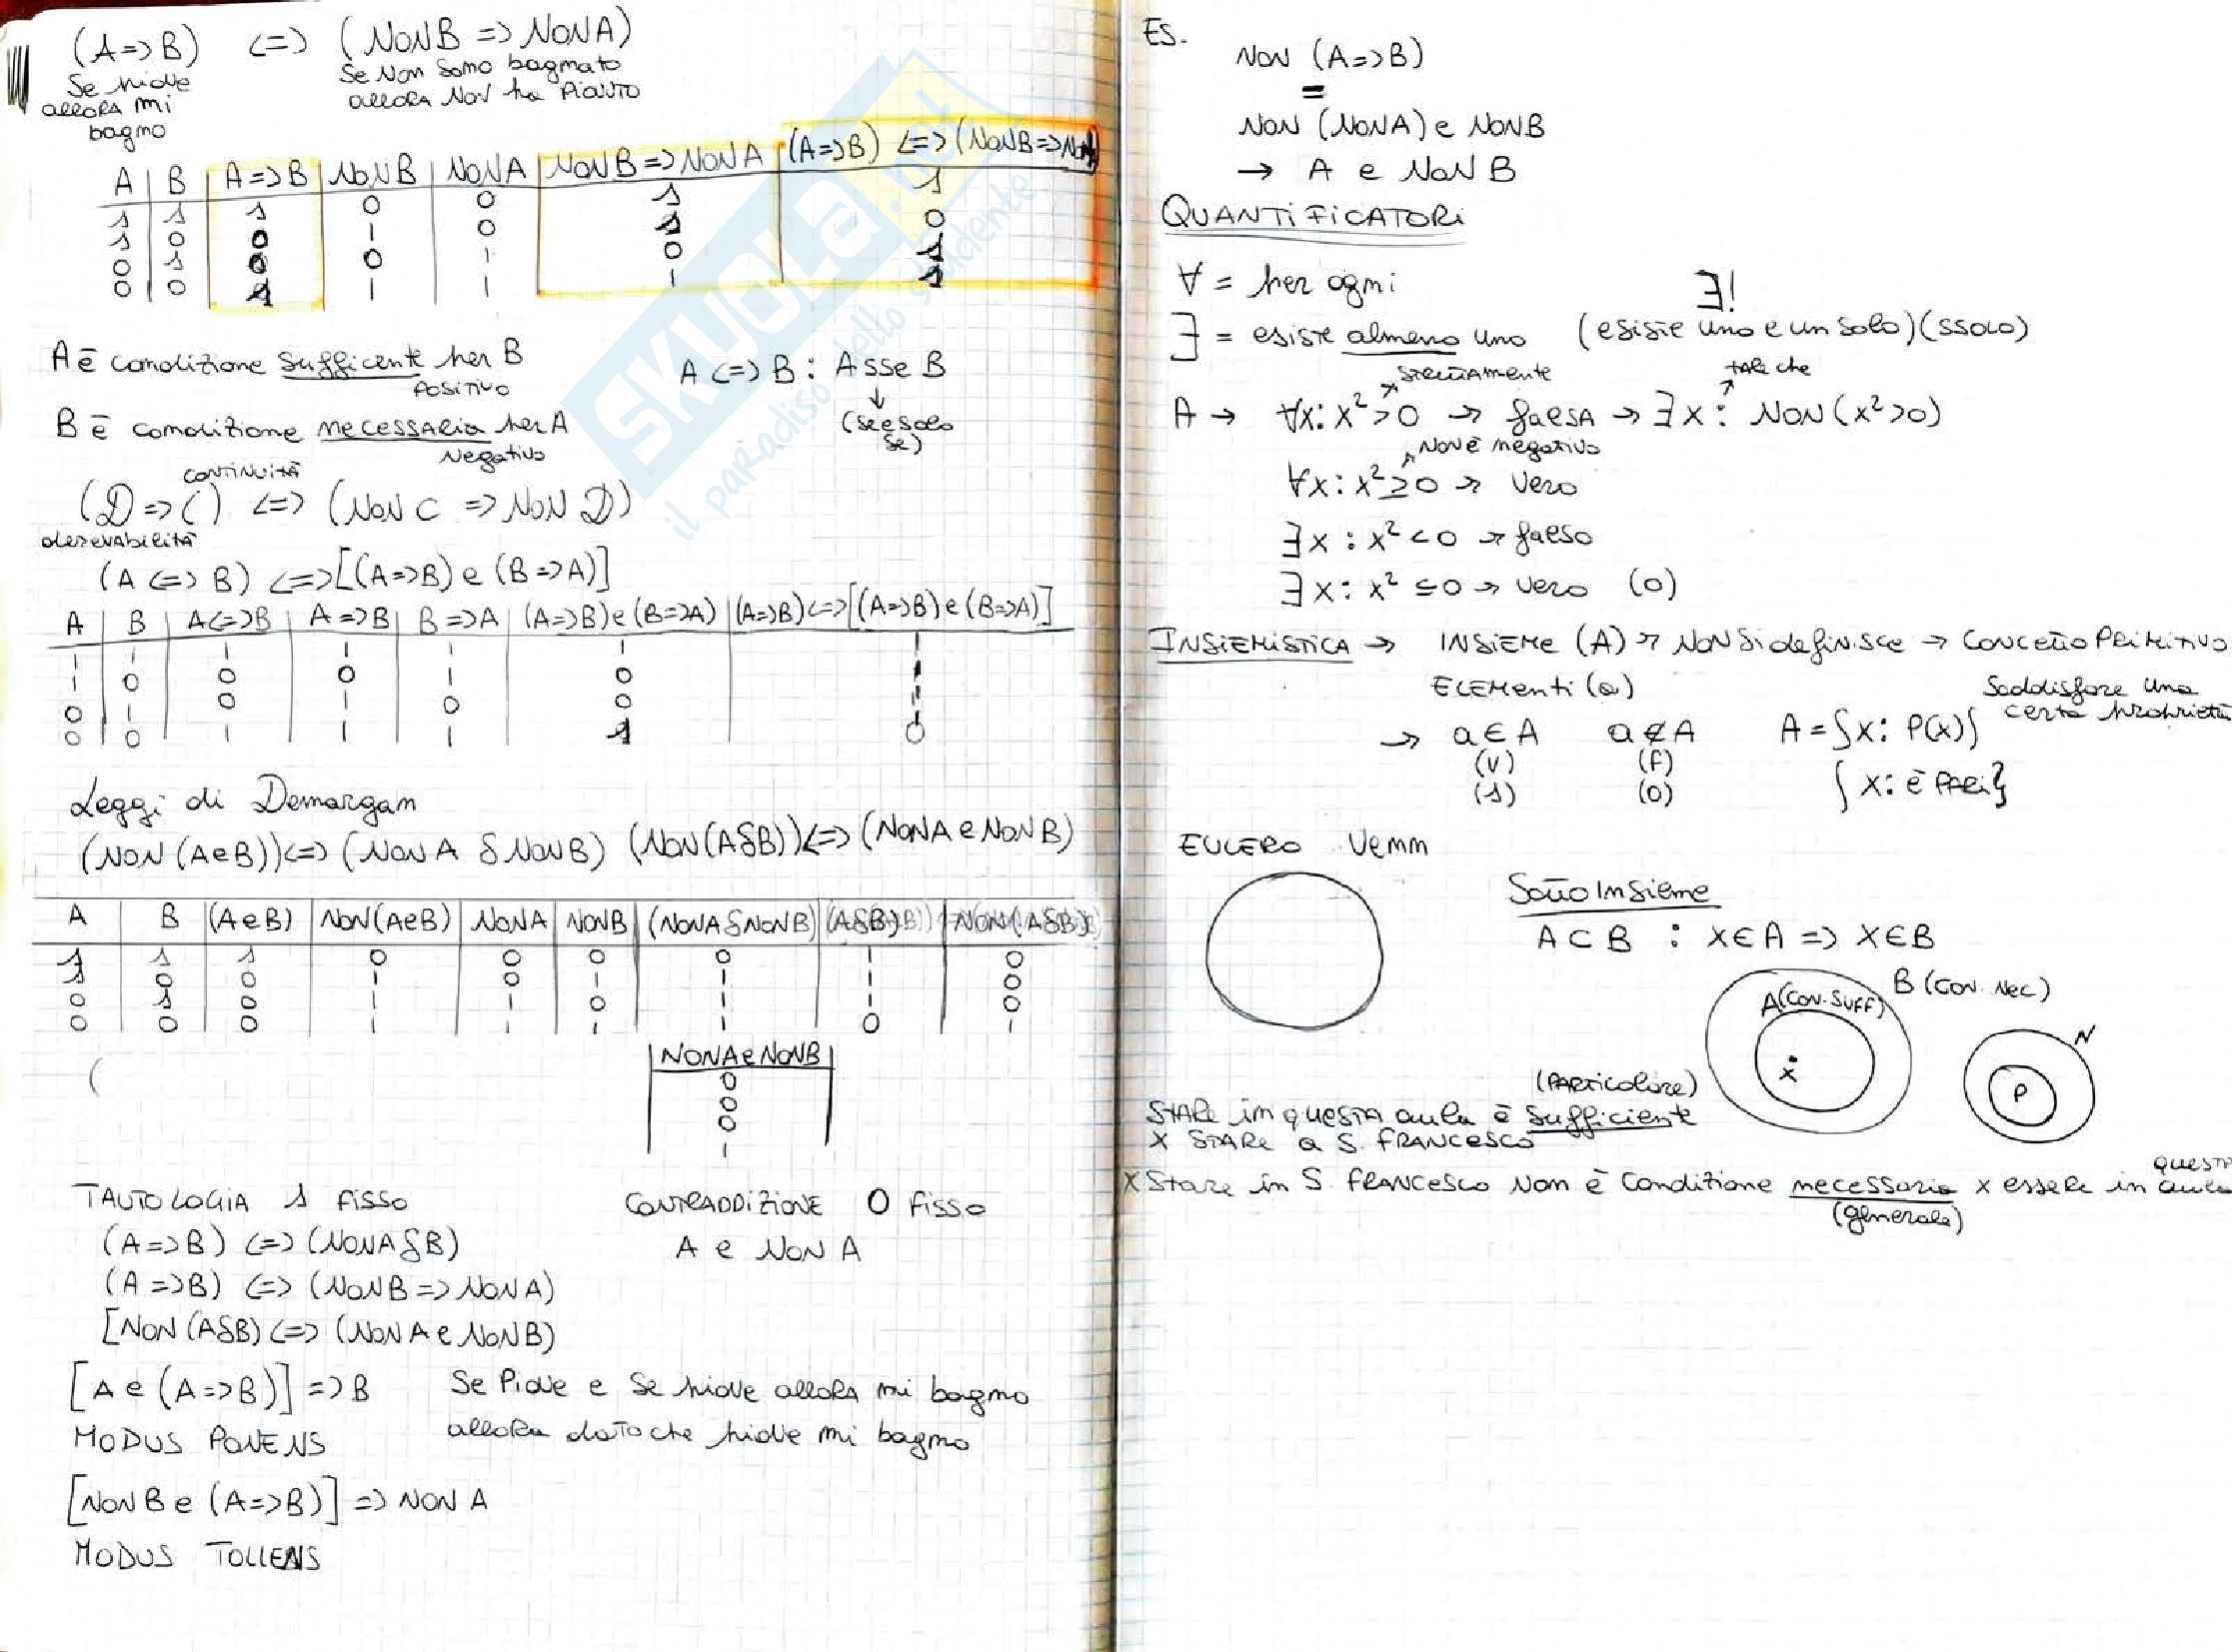 (A=>B) <=> (NON B => NON A)
Se piove allora mi bagno
Se non sono bagnato allora non ha piovuto
A | B | A=>B | NON B | NON A | NON B => NON A | (A=>B) <=> (NON B=>NON A)
1 1 1 0 0 1 1
1 0 0 1 0
0 1 0 1
0 0 1 1 1 1
A è condizione sufficente per B
Positivo
B è condizione necessaria per A
Negativo
A <=> B : A sse B
↓
(se e solo se)
continuità
(D => C) <=> (NON C => NON D)
derevabilità
(A <=> B) <=> [(A=>B) e (B=>A)]
A | B | A<=>B | A=>B | B=>A | (A=>B) e (B=>A) | (A=>B)<=>[(A=>B) e (B=>A)]
1 1 1 1 1 1 1
1 0 0 0 1 0 1
0 1 0 1 0 0 1
0 0 1 1 1 1 0
Leggi di Demorgan
(NON (A e B))<=> (NON A δ NON B) (NON (A δ B))<=> (NON A e NON B)
A | B | (A e B) | NON(A e B) | NON A | NON B | (NON A δ NON B) | (A δ B) | NON (A δ B)
1 1 1 0 0 0 0 1 0
1 0 0 1 0 1 1 1 0
0 1 0 1 1 0 1 1 0
0 0 0 1 1 1 1 0 1
(
NON A e NON B
0
0
0
1
TAUTOLOGIA 1 fisso
CONTRADDIZIONE 0 fisso
(A=>B) <=> (NON A δ B)
A e NON A
(A=>B) <=> (NON B => NON A)
[NON (A δ B) <=> (NON A e NON B)
[A e (A=>B)] => B
Se Piove e se piove allora mi bagno
MODUS PONENS
allora dato che piove mi bagno
[NON B e (A=>B)] => NON A
MODUS TOLLENS
ES.
NON (A=>B)
=
NON (NON A) e NON B
→ A e NON B
QUANTIFICATORI
∀ = per ogni
∃!
∃ = esiste almeno uno (esiste uno e un solo) (ssolo)
strettamente
tale che
A → ∀x: x² > 0 → falsa → ∃x : NON (x² > 0)
Non è negativo
∀x: x² ≥ 0 → vero
∃x : x² < 0 → falso
∃x : x² ≤ 0 → vero (0)
INSIEMISTICA → INSIEME (A) → NON si definisce → CONCETTO PRIMITIVO
ELEMENTI (a)
Soddisfare una certa proprietà
→ a ∈ A a ∉ A A = {x: P(x)}
(V) (F)
(1) (0)
{x: è PARI}
EULERO Venn
Sottoinsieme
A ⊂ B : x ∈ A => x ∈ B
A (CON. SUFF)
B (CON. Nec)
x
N
P
(PARTicolare)
STARE in questa aula è sufficiente
x STARE a S. FRANCESCO
x Stare in S. FRANCESCO NON è condizione necessaria x essere in questa aula
(generale)
SKUOLA.net
il paradiso dello studente